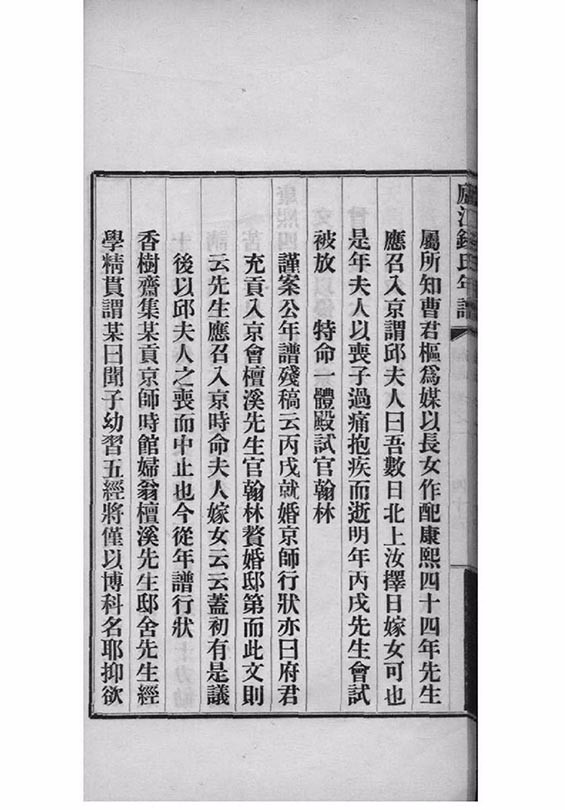 廬江錢氏年譜
屬所知曹君樞爲媒以長女作配康熙四十四年先生
應召入京謂邱夫人曰吾數日北上汝擇日嫁女可也
是年夫人以喪子過痛抱疾而逝明年丙戌先生會試
被放　特命一體殿試官翰林
謹案公年譜殘稿云丙戌就婚京師行狀亦曰府君
充貢入京會檀溪先生官翰林贅婚邸第而此文則
云先生應召入京時命夫人嫁女云云蓋初有是議
後以邱夫人之喪而中止也今從年譜行狀
香樹齋集某貢京師時館婦翁檀溪先生邸舍先生經
學精貫謂某曰聞子幼習五經將僅以博科名耶抑欲